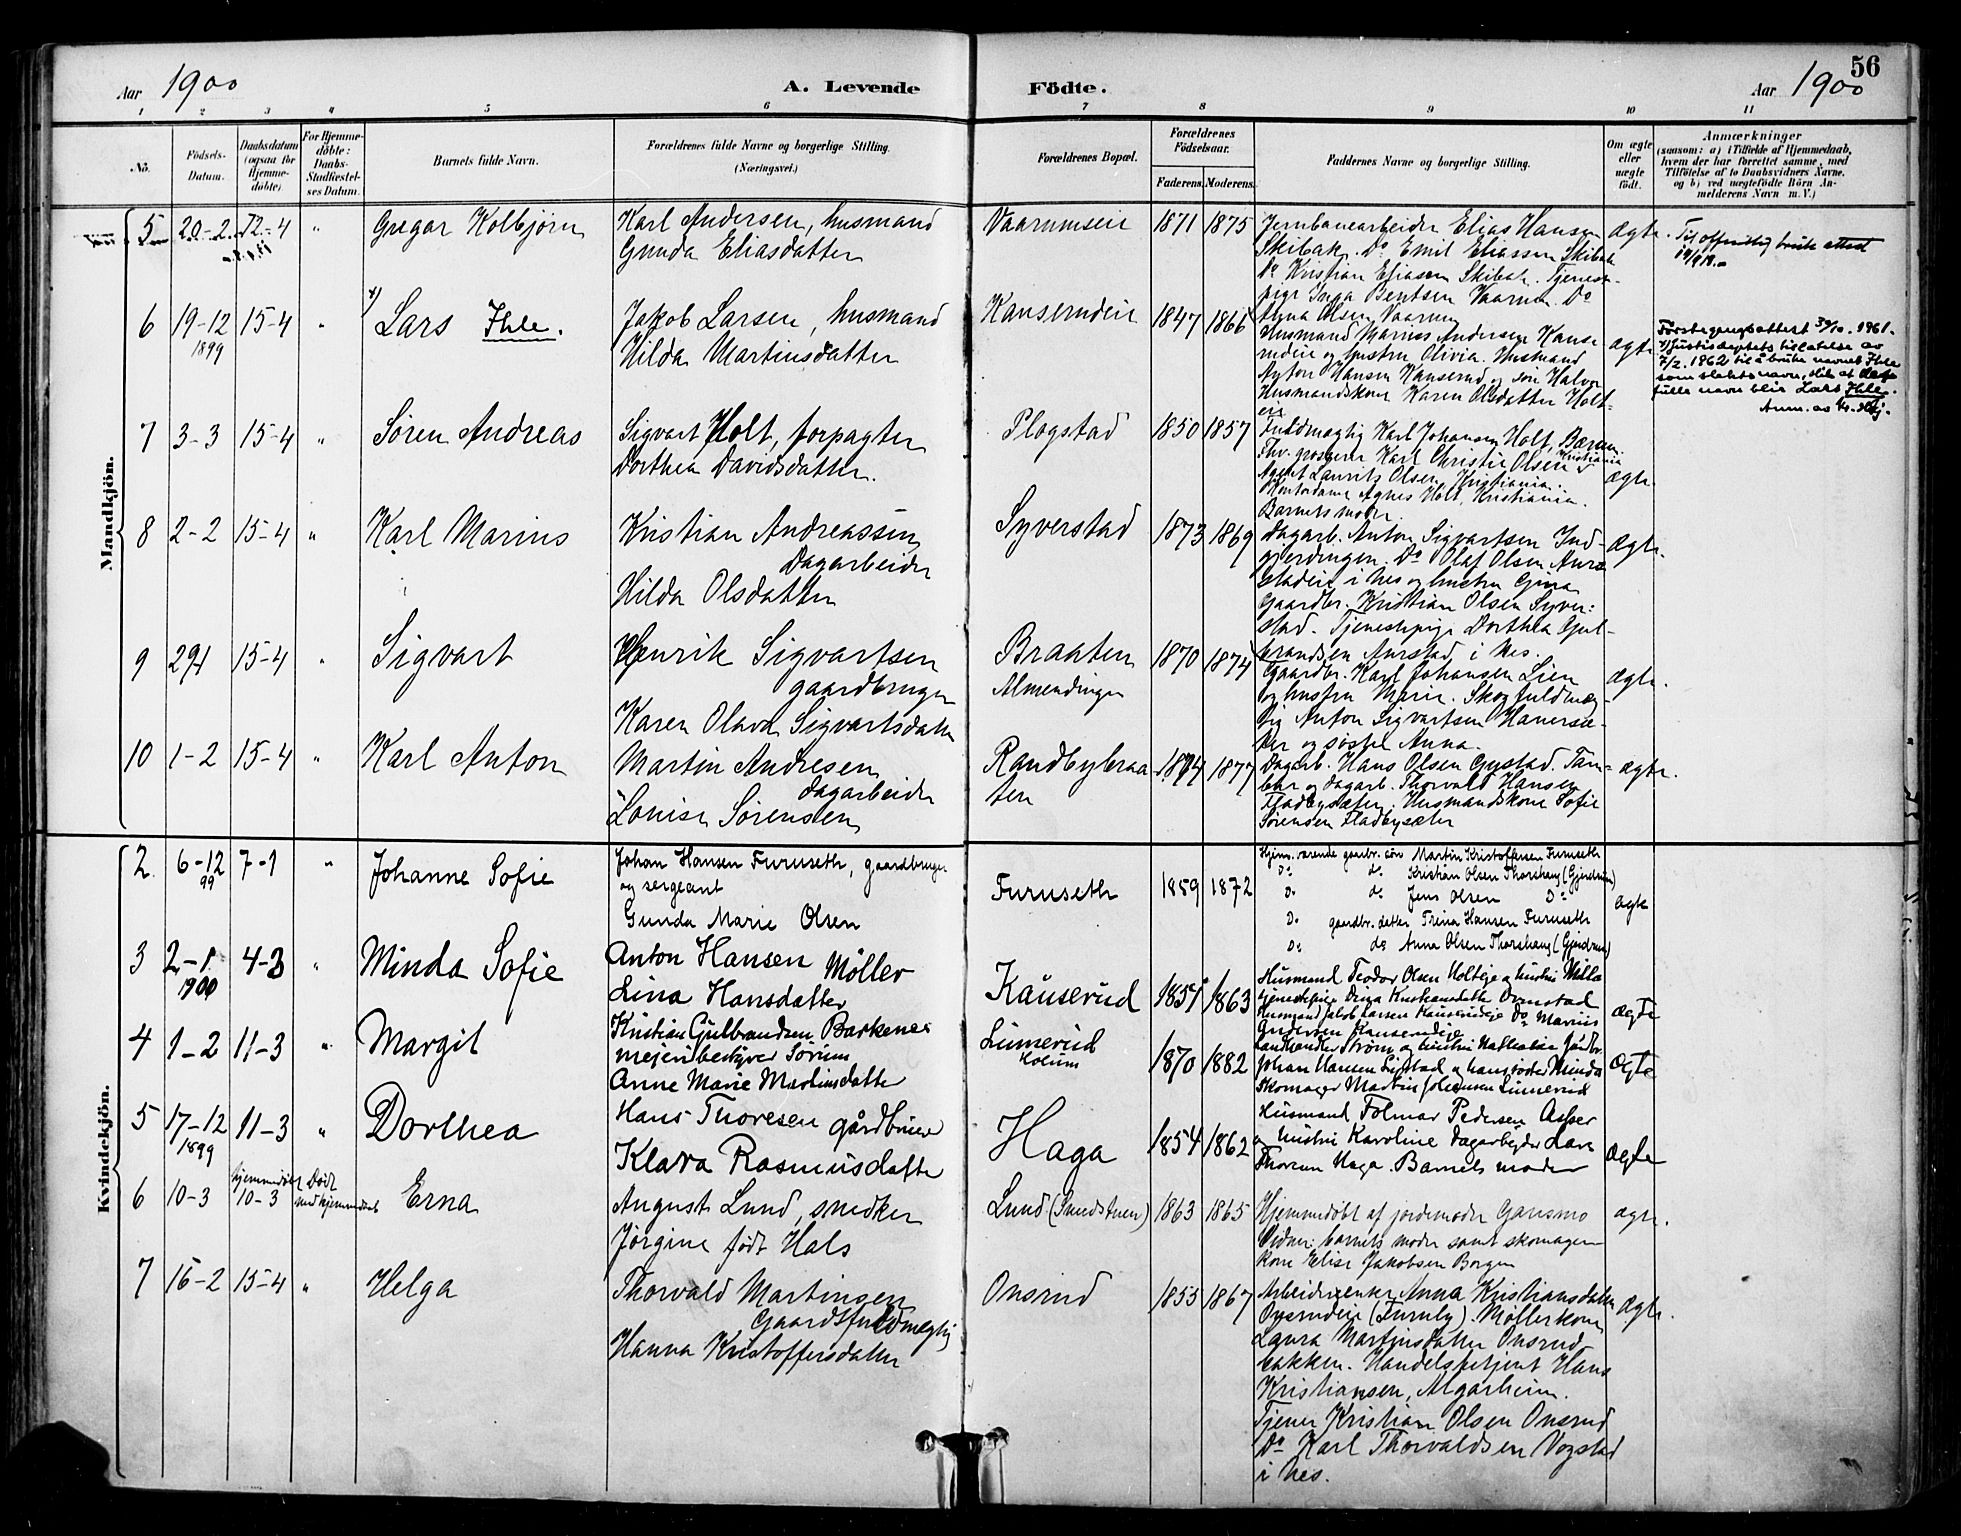 56
Aar 1900
A. Levende
Födte.
Aar 1900
1 2 3 4 5 6 7 8 9 10 11
No.
Födsels-Datum.
Daabsdatum (ogsaa for Hjemme-döbte).
For Hjemme-döbte: Daabs-Stadfæstel-ses Datum.
Barnets fulde Navn.
Forældrenes fulde Navne og borgerlige Stilling.
(Næringsvei.)
Forældrenes Bopæl.
Forældrenes Födselsaar.
Faderens. Moderens.
Faddernes Navne og borgerlige Stilling.
Om ægte eller uægte födt.
Anmærkninger
(saasom: a) i Tilfælde af Hjemmedaab,
hvem der har forrettet samme, med
Tilföielse af to Daabsvidners Navne,
og b) ved uægtefödte Börn An-
melderens Navn m. V.)
Mandkjön.
5 20-2 12-4 " Gregar Kolbjørn
Karl Andersen, husmand
Gunda Eliasdatter
Vaarumseie 1871 1875
Jernbanearbeider Elias Hansen
Skibak. Do Emil Eliassen Skibak
Do Kristian Eliasen Skibak. Tjenest-
pige Inga Bentsen Vaarum. Do
Anna Olsen Vaarum
ægte.
Til offentlig bruk attest
6 19-12 1899 15-4 " Lars Ihle.
Jakob Larsen, husmand
Hilda Martinsdatter
Kanserudeie 1847 1866
Husmand Marius Andersen Kanse
rudeie og hustru Olivia. Husmand
Anton Hansen Kanserud og søn Halvor
Husmandskone Karen Olsdatter Holt-
eie
ægte
Førstegangsattest 30/10. 1961.
Justisdeptets tillatelse av
7/2. 1962 til å bruke navnet Ihle
som slektsnavn, slik at dets
fulle navn blir Lars Ihle.
7 3-3 15-4 " Søren Andreas
Sigvart Holt, forpagter
Dorthea Davidsdatter.
Plogstad 1850 1857
Fuldmægtig Karl Johansen Holt, Bærum.
Fhv. grosserer Karl Christie Olsen Kristiania
Agent Laurits Olsen, Kristiania.
Kontordame Agnes Holt, Kristiania.
Barnets moder.
ægte.
8 2-2 15-4 " Karl Marius
Kristian Andreassen
Dagarbeider
Hilda Olsdatter
Syverstad 1873 1869
Dagarb. Anton Sigvartsen Ind-
gjerdingen. Do Olaf Olsen Aur-
stadeie i Nes og hustru Gina
Gaardbr. Kristian Olsen Syver-
stad. Tjenestepige Dorthea Gul-
brandsen Aurstad i Nes.
Ægte.
9 29/1 15-4 " Sigvart
Henrik Sigvartsen
gaardbruger
Karen Olava Sigvartsdatter
Braaten
Almendingen
1870 1874
Gaardbr. Karl Johansen Lien
og hustru Marie. Skogfuldmæg-
tig Anton Sigvartsen Hanersæ-
ter og søster Anna.
ægte.
10 1-2 15-4 " Karl Anton
Martin Andresen
dagarbeider
Lovise Sørensen
Randbybraa
ten
1874 1877
Dagarb. Hans Olsen Gystad. Tøm-
ber og dagarb. Thorvald Hansen
Fladbysæter. Husmandskone Sofie
Sørensen Fladbysæter
ægte.
Kvindekjön.
2 6-12 99 7-1 " Johanne Sofie
Johan Hansen Furuseth, gaardbruger
og sergeant
Gunda Marie Olsen
Furuseth 1859 1872
Hjem. værende gaardbr. søn Martin Kristoffersen Furuseth
Do do Kristian Olsen Thorshaug (Gjerdrum)
Do do Jens Olsen Do
Do gaardbr. datter Trina Hansen Furuseth
Do do Anna Olsen Thorshaug (Gjerdrum)
ægte
3 2-1 1900 4-3 " Minda Sofie
Anton Hansen Möller
Lina Hansdatter
Kauserud 1857 1863
Husmand Teodor Olsen Holteie og hustru Milla
tjenestepige Dina Kristiansdatter Ovnstad
Husmand Jakob Larsen Kauserudeje Do Marius
Andersen Kauserudeje
ægte
4 1-2 11-3 " Margit
Kristian Gulbrandsen Barkenes
mejeribestyrer Sørum
Anne Marie Martinsdatter
Linnerud
Holum
1870 1882
Landhandler Strøm og hustru Nathalia Gårdbr.
Johan Hansen Ligstad og hans søster Minda
Skomager Martin Johansen Linnerud
ægte
5 17-12 1899 11-3 " Dorthea
Hans Thoresen gårdbruger
Klara Rasmusdatter
Haga 1854 1862
Husmand Folmar Pedersen Asper
og hustru Karoline dagarbejder Lars
Thoresen Haga. Barnets moder
ægte
6 10-3 hjemmedøbt 10-3 Død Erna
August Lund, snedker
Jørgine født Hals
Lund (Lundstuen) 1863 1865
Hjemmedøbt af jordemoder Gansmo
Vidner: barnets moder samt skomager-
kone Elise Jakobsen Borgen
ægte.
7 16-2 15-4 " Helga
Thorvald Martinsen
Gaardsfuldmegtig
Hanna Kristoffersdatter
Onsrud 1855 1867
Arbeiderenke Anna Kristiansdatter
Onsrudeie (Furuly). Møllerkone
Laura Martinsdatter Onsrud
bakken. Handelsbetjent Hans
Kristiansen, Algarheim.
Tjener Kristian Olsen Onsrud
Do Karl Thorvaldsen Vogstad
i Nes.
Ægte.